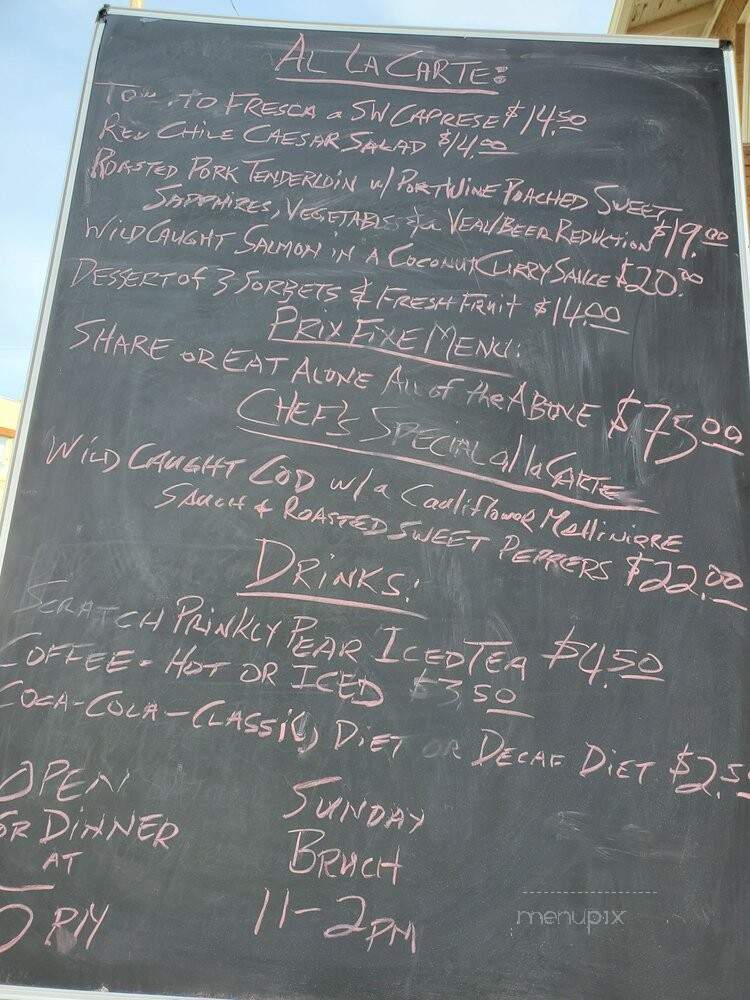 AL LA CARTE:
FRESCA a SW CAPRESE $14.50
RED CHILE CAESAR SALAD $14.00
ROASTED PORK TENDERLOIN w/ PORT WINE POACHED SWEET
SAPPHIRES, VEGETABLES & a VEAL/BEER REDUCTION $19.00
WILD CAUGHT SALMON in A COCONUT CURRY SAUCE $20.00
DESSERT of 3 SORBETS & FRESH FRUIT $14.00
PRIX FIXE MENU:
SHARE OR EAT ALONE ALL of the ABOVE $75.00
CHEF'S SPECIAL al la CARTE
WILD CAUGHT COD w/ a Cauliflower
& ROASTED SWEET PEPPERS $22.00
DRINKS:
SCRATCH PRINKLY PEAR ICED TEA $4.50
COFFEE - HOT OR ICED $3.50
COCA-COLA - CLASSIC, DIET OR DECAF DIET $2.5
OPEN
OR DINNER
AT
SUNDAY
BRUCH
11-2PM
menupix